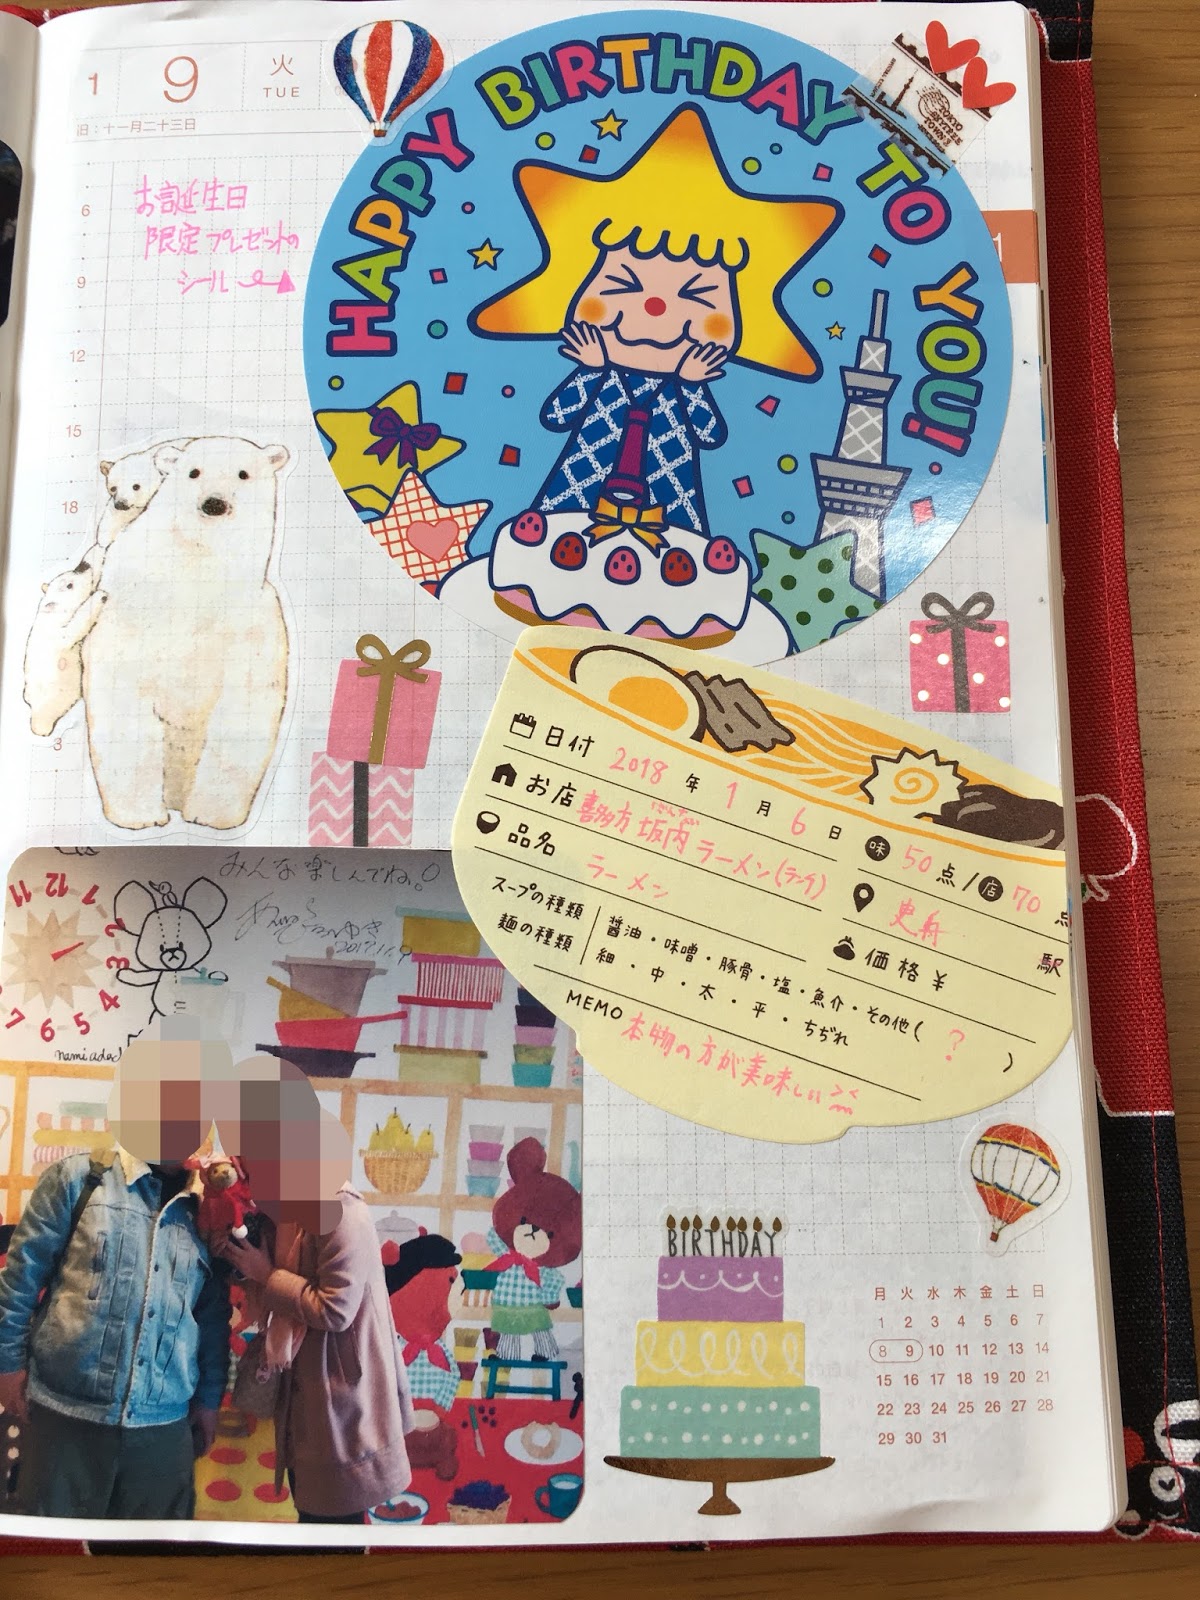 1 9 火
TUE
旧:十一月二十三日
HAPPY BIRTHDAY TO YOU!
TOKYO
SKYTREE
TOWN
1
お誕生日
限定プレゼントの
シール
6
9
12
15
18
3
日付 2018年1月6日
味 50点/店 70点
お店 喜多方 坂内 ラーメン(ラーク)
品名 ラーメン
駅
価格 ¥
スープの種類 醤油・味噌・豚骨・塩・魚介・その他( ? )
麺の種類 細・中・太・平・ちぢれ
MEMO 本物の方が美味しい
みんな楽しんでね。
11 12
2
3
4
5
6
7
BIRTHDAY
月 火 水 木 金 土 日
1 2 3 4 5 6 7
8 9 10 11 12 13 14
15 16 17 18 19 20 21
22 23 24 25 26 27 28
29 30 31